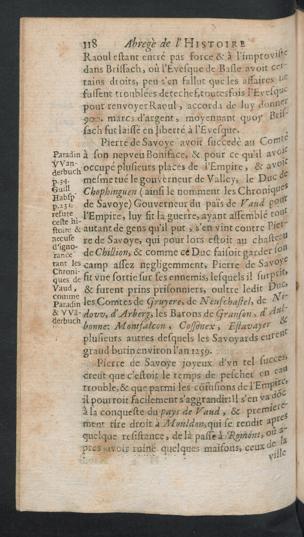 118 Abregè de l'HISTOIRE
Raoul estant entré pas force & à l'improviste
dans Brissach, où l'Evesque de Basle avoit cer-
tains droits, peu s'en fallut que les affaires ne
fussent troublées de rechef, toutesfois l'Evesque
pour renvoyer Raoul, accorda de luy donner
900. marcs d'argent, moyennant quoy Bris-
sach fut laissé en liberté à l'Evesque.
Pierre de Savoye avoit succedé au Comté
à son nepveu Boniface, & pour ce qu'il avoit
occupé plusieurs places de l'Empire, & avoit
mesme tué le gouverneur de Valley, le Duc de
Chophinguen (ainsi le nomment les Chroniques
de Savoye) Gouverneur du païs de Vaud pour
l'Empire, luy fit la guerre, ayant assemblé tout
autant de gens qu'il put, s'en vint contre Pier-
re de Savoye, qui pour lors estoit au chasteau
de Chillion, & comme ce Duc faisoit garder son
camp assez negligemment, Pierre de Savoye
fit vne sortie sur ses ennemis, lesquels il surprit,
& furent prins prisonniers, oultre ledit Duc,
les Comtes de Gruyere, de Neufchastel, de Ni-
dovv, d'Arberg, les Barons de Granson, d'Aul-
bonne, Montfalcon, Cossonex, Estavayer &
plusieurs autres desquels les Savoyards eurent
grand butin environ l'an 1259.
Pierre de Savoye joyeux d'vn tel succes,
creut que c'estoit le temps de pescher en eau
trouble, & que parmi les cõfusions de l'Empire,
il pourroit facilement s'aggrandir: il s'en va dõc
à la conqueste du pays de Vaud, & premiere-
ment tire droit à Mouldon, qui se rendit apres
quelque resistance, de là passe à Romont, où a-
pres avoir ruiné quelques maisons, ceux de la
ville
Paradin
& VVan-
derbuch
p. 94.
Guill.
Habsp
p. 231.
refute
ceste hi-
stoire &
accuse
d'igno-
rance
tant les
Chroni-
ques de
Vaud,
comme
Paradin
& VVã-
derbuch